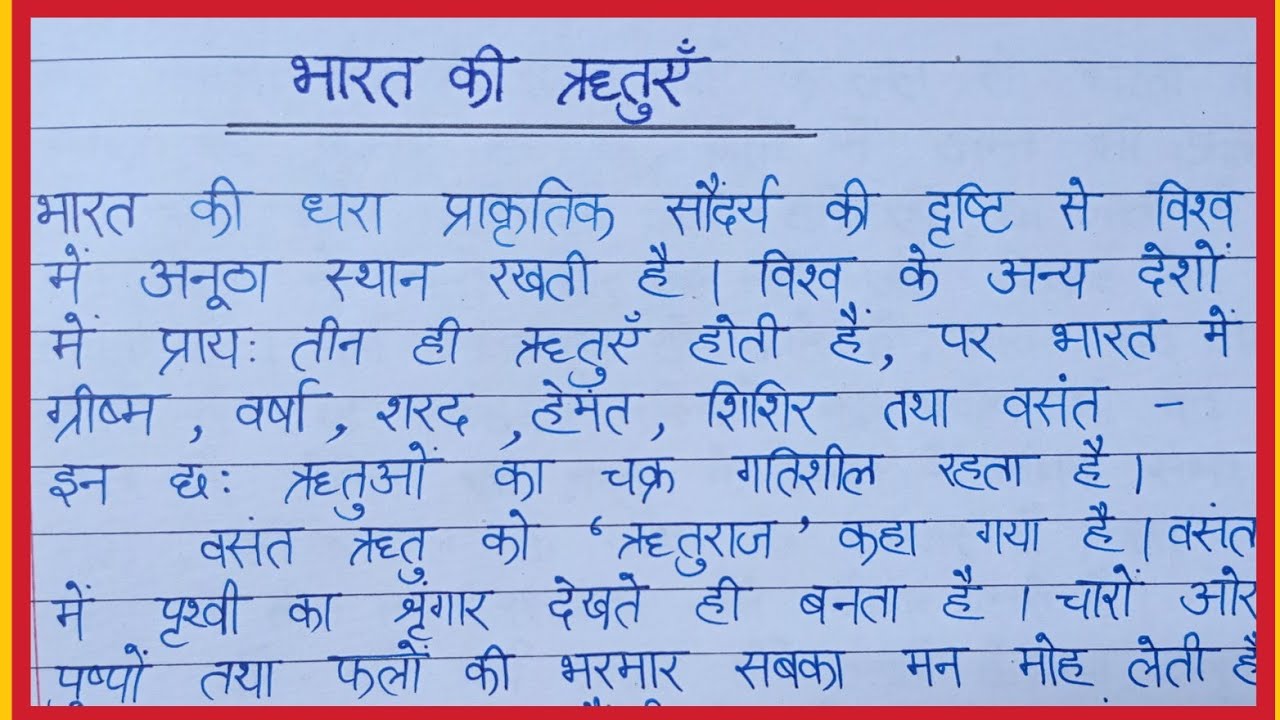 भारत की ऋतुएँ
भारत की धरा प्राकृतिक सौंदर्य की दृष्टि से विश्व
में अनूठा स्थान रखती है। विश्व के अन्य देशों
में प्राय: तीन ही ऋतुएँ होती हैं, पर भारत में
ग्रीष्म, वर्षा, शरद, हेमंत, शिशिर तथा वसंत -
इन छ: ऋतुओं का चक्र गतिशील रहता है।
वसंत ऋतु को 'ऋतुराज' कहा गया है। वसंत
में पृथ्वी का श्रृंगार देखते ही बनता है। चारों ओर
पुष्पों तथा फलों की भरमार सबका मन मोह लेती है